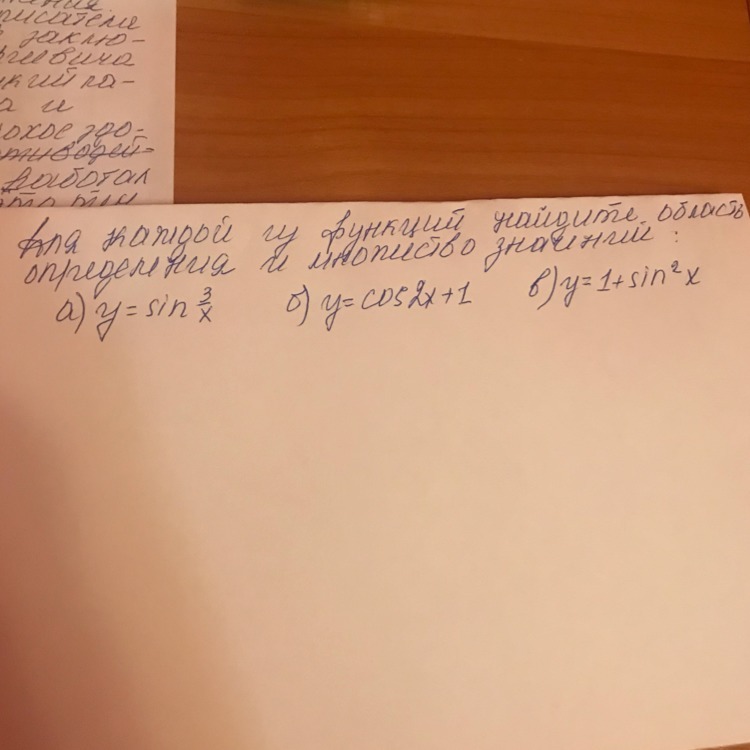 писатели
заклю-
кий па-
а и
охое здо-
работал
Для каждой из функций найдите область
определения и множество значений:
а) y = sin 3/x б) y = cos 2x + 1 в) y = 1 + sin² x